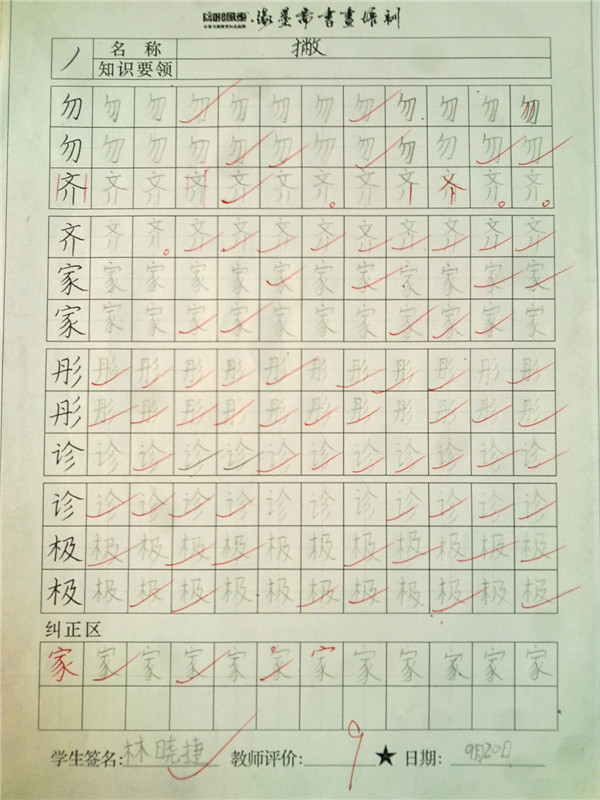 墨常書畫培訓
丿 名称 撇
知识要领
勿 勿 勿 勿 勿 勿 勿 勿 勿 勿 勿 勿
勿 勿 勿 勿 勿 勿 勿 勿 勿 勿 勿 勿
齐 齐 齐 齐 齐 齐 齐 齐 齐 齐 齐 齐
齐 齐 齐 齐 齐 齐 齐 齐 齐 齐 齐 齐
家 家 家 家 家 家 家 家 家 家 家 家
家 家 家 家 家 家 家 家 家 家 家 家
彤 彤 彤 彤 彤 彤 彤 彤 彤 彤 彤 彤
彤 彤 彤 彤 彤 彤 彤 彤 彤 彤 彤 彤
诊 诊 诊 诊 诊 诊 诊 诊 诊 诊 诊 诊
诊 诊 诊 诊 诊 诊 诊 诊 诊 诊 诊 诊
极 极 极 极 极 极 极 极 极 极 极 极
极 极 极 极 极 极 极 极 极 极 极 极
纠正区
家 家 家 家 家 家 家 家 家 家 家 家
学生签名:林晓捷 教师评价:9 ★ 日期:9月20日